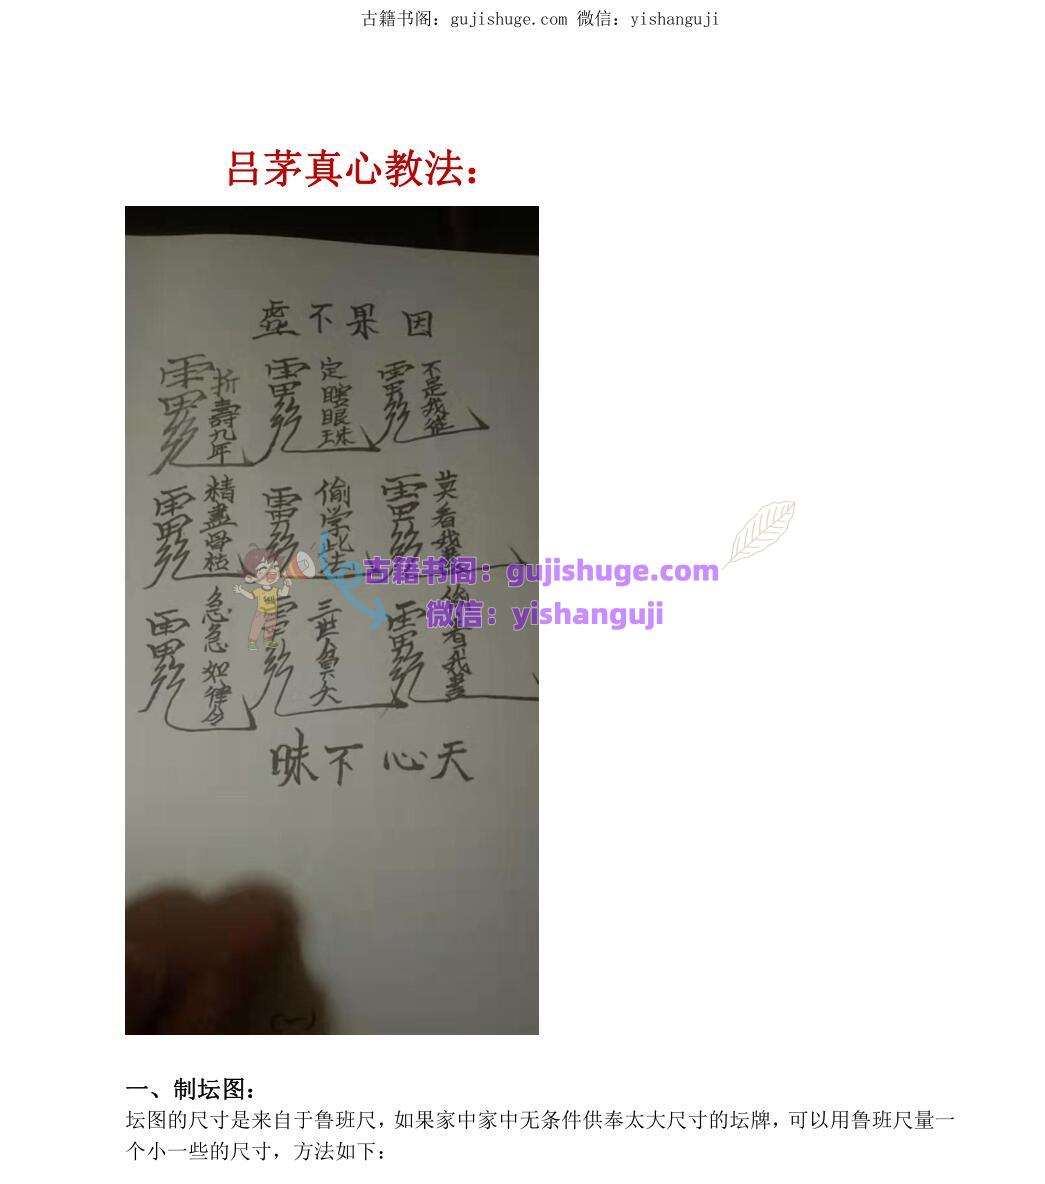 古籍书阁：gujishuge.com 微信：yishanguji
吕茅真心教法：
因果不虚
不是我徒
定瞎眼珠
折壽九年
莫看我
偷学此法
精盡骨枯
看我書
三世
急急如律令
天心下昧
古籍书阁：gujishuge.com
微信：yishanguji
(一)
一、制坛图：
坛图的尺寸是来自于鲁班尺，如果家中家中无条件供奉太大尺寸的坛牌，可以用鲁班尺量一
个小一些的尺寸，方法如下：